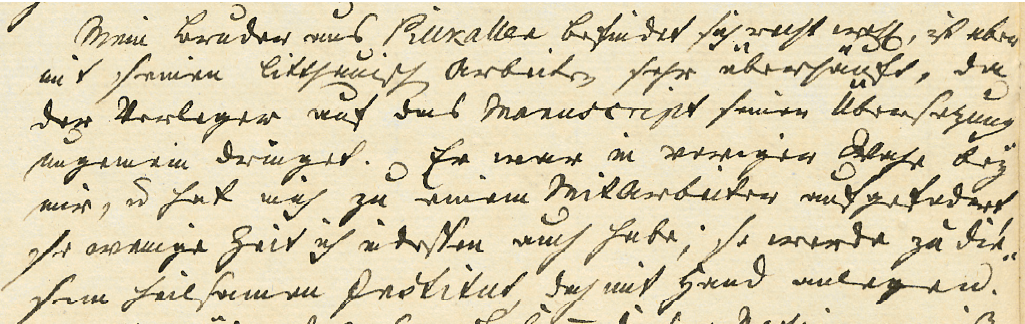 Mein Bruder aus Pillkallen befindet sich recht wohl, ist aber
mit seinen litthauisch Arbeiten sehr überhäuft, da
der Verleger auf das Manuscript seiner Übersetzung
ungemein dringet. Er war in voriger Woche bey
mir, u hat mich zu einem Mitarbeiter aufgefodert
so wenige Zeit ich indessen auch habe; so werde zu die„
sem heilsamen Institut, doch mit Hand anlegen.